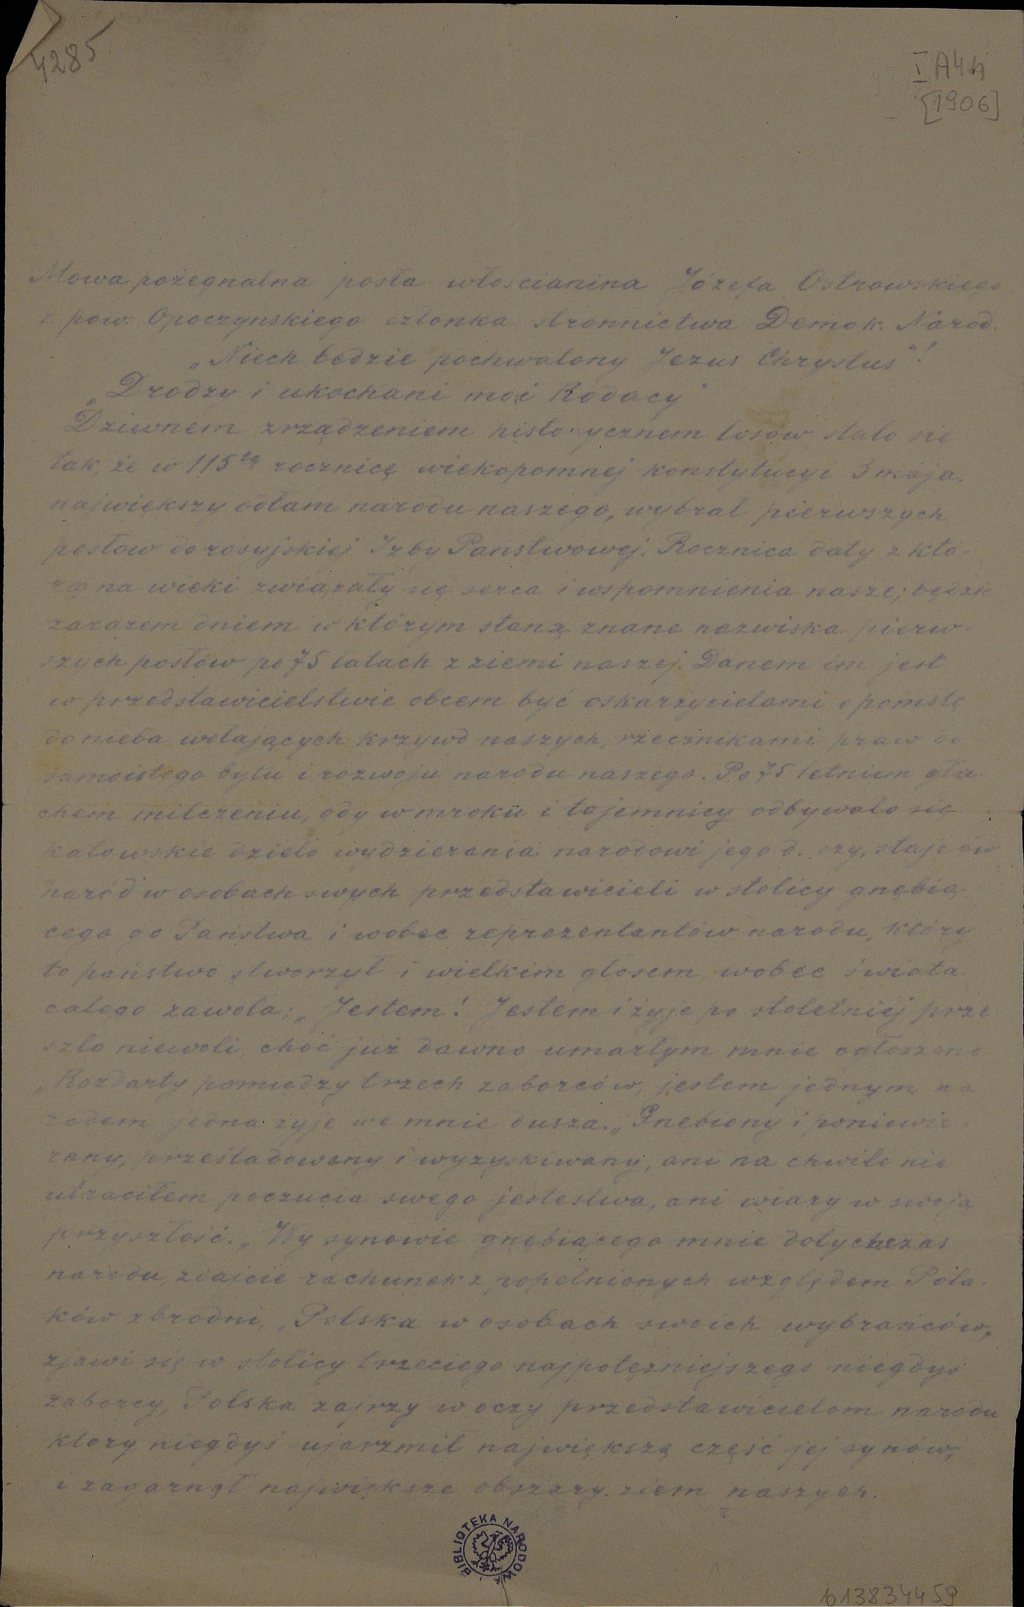 4285
I A4h
[1906]
Mowa pożegnalna posła włościanina Józefa Ostrowskiego
z pow. Opoczynskiego członka stronnictwa Demok. Narod.
„Niech będzie pochwalony Jezus Chrystus"!
„Drodzy i ukochani moi Rodacy"
Dziwnem zrządzeniem historycznem losów stało się
tak, że w 115tą rocznicę wiekopomnej konstytucyi 3 maja,
największy odłam narodu naszego, wybrał pierwszych
posłów do rosyjskiej Izby Panstwowej. Rocznica daty z któ-
rą na wieki związały się serca i wspomnienia nasze, będzie
zarazem dniem w którym staną znane nazwiska pierw-
szych posłów po 75 latach z ziemi naszej. Danem im jest
w przedstawicielstwie obcem być oskarżycielami o pomstę
do nieba wołających krzywd naszych, rzecznikami praw do
samoistego bytu i rozwoju narodu naszego. Po 75 letniem głu-
chem milczeniu, gdy w mroku i tajemnicy odbywało się
katowskie dzieło wydzierania narodowi jego duszy, staje ów
naród w osobach swych przedstawicieli w stolicy gnębią-
cego go Państwa i wobec reprezentantów narodu, który
to państwo stworzył i wielkim głosem wobec świata
całego zawoła: „Jestem! Jestem i żyję po stoletniej prze-
szło niewoli, choć już dawno umarłym mnie ogłoszono
„Rozdarty pomiędzy trzech zaborców, jestem jednym na-
rodem, jedna żyje we mnie dusza. „Gnębiony i poniewie-
rany, prześladowany i wyzyskiwany, ani na chwilę nie
utraciłem poczucia swego jestestwa, ani wiary w swoją
przyszłość. „Wy synowie gnębiącego mnie dotychczas
narodu, zdajcie rachunek z popełnionych względem Pola-
ków zbrodni, „Polska w osobach swoich wybrańców,
zjawi się w stolicy trzeciego najpotężniejszego niegdyś
zaborcy, Polska zajrzy w oczy przedstawicielom narodu
który niegdyś ujarzmił największą część jej synów,
i zagarnął największe obszary ziem naszych.
BIBLIOTEKA NARODOWA
613834459